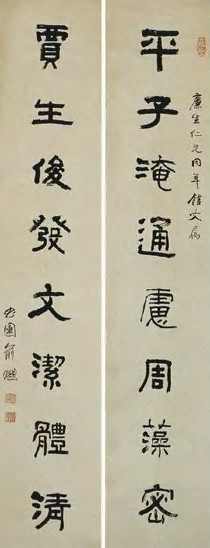 平子淹通慮周藻密
廉生仁兄同年館丈屬
賈生俊發文潔體清
曲園俞樾